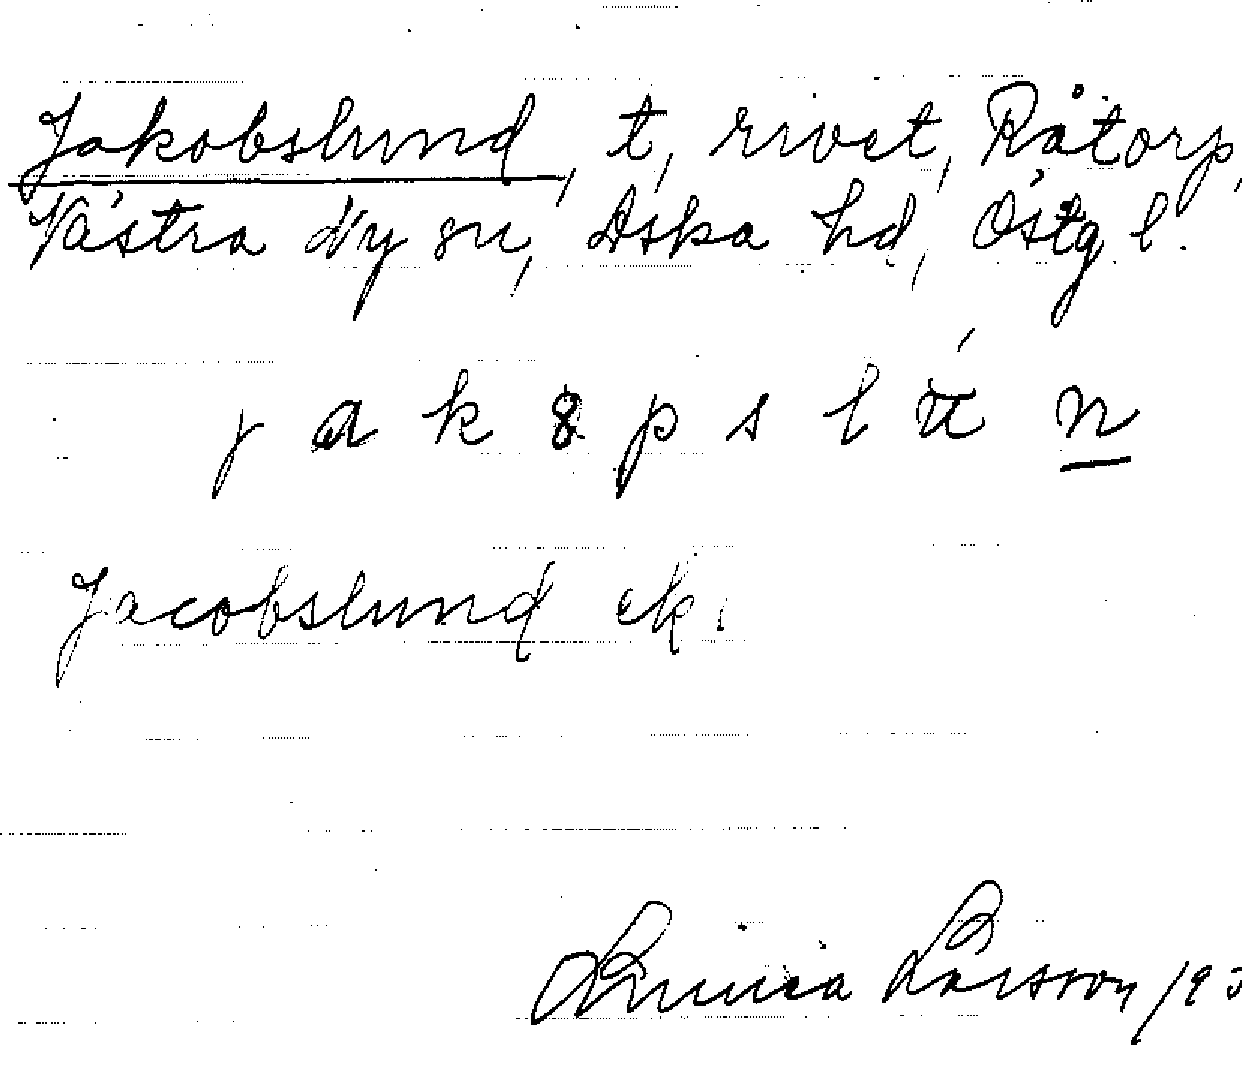 Jakobslund, t, rivet, Råtorp,
Västra Ny sn, Aska hd, Östg l.
j a k o p s l u n
Jacobslund ek.
Larsson 193